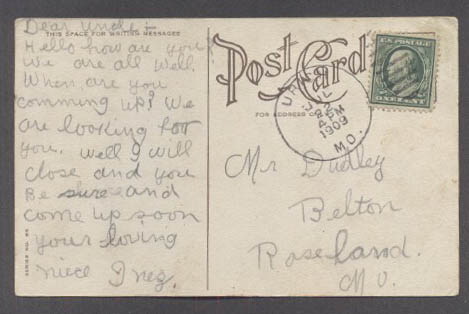 Dear Uncle:-
THIS SPACE FOR WRITING MESSAGES
Hello how are you
We are all well.
When are you
comming up? We
are looking for
you. well I will
close and you
Be sure and
come up soon
your loving
niece Inez.
SERIES NO.
Post Card
FOR ADDRESS
U.S. POSTAGE
ONE CENT
JUL
22
4 PM
1909
MO.
Mr Dudley
Belton
Roseland.
Mo.